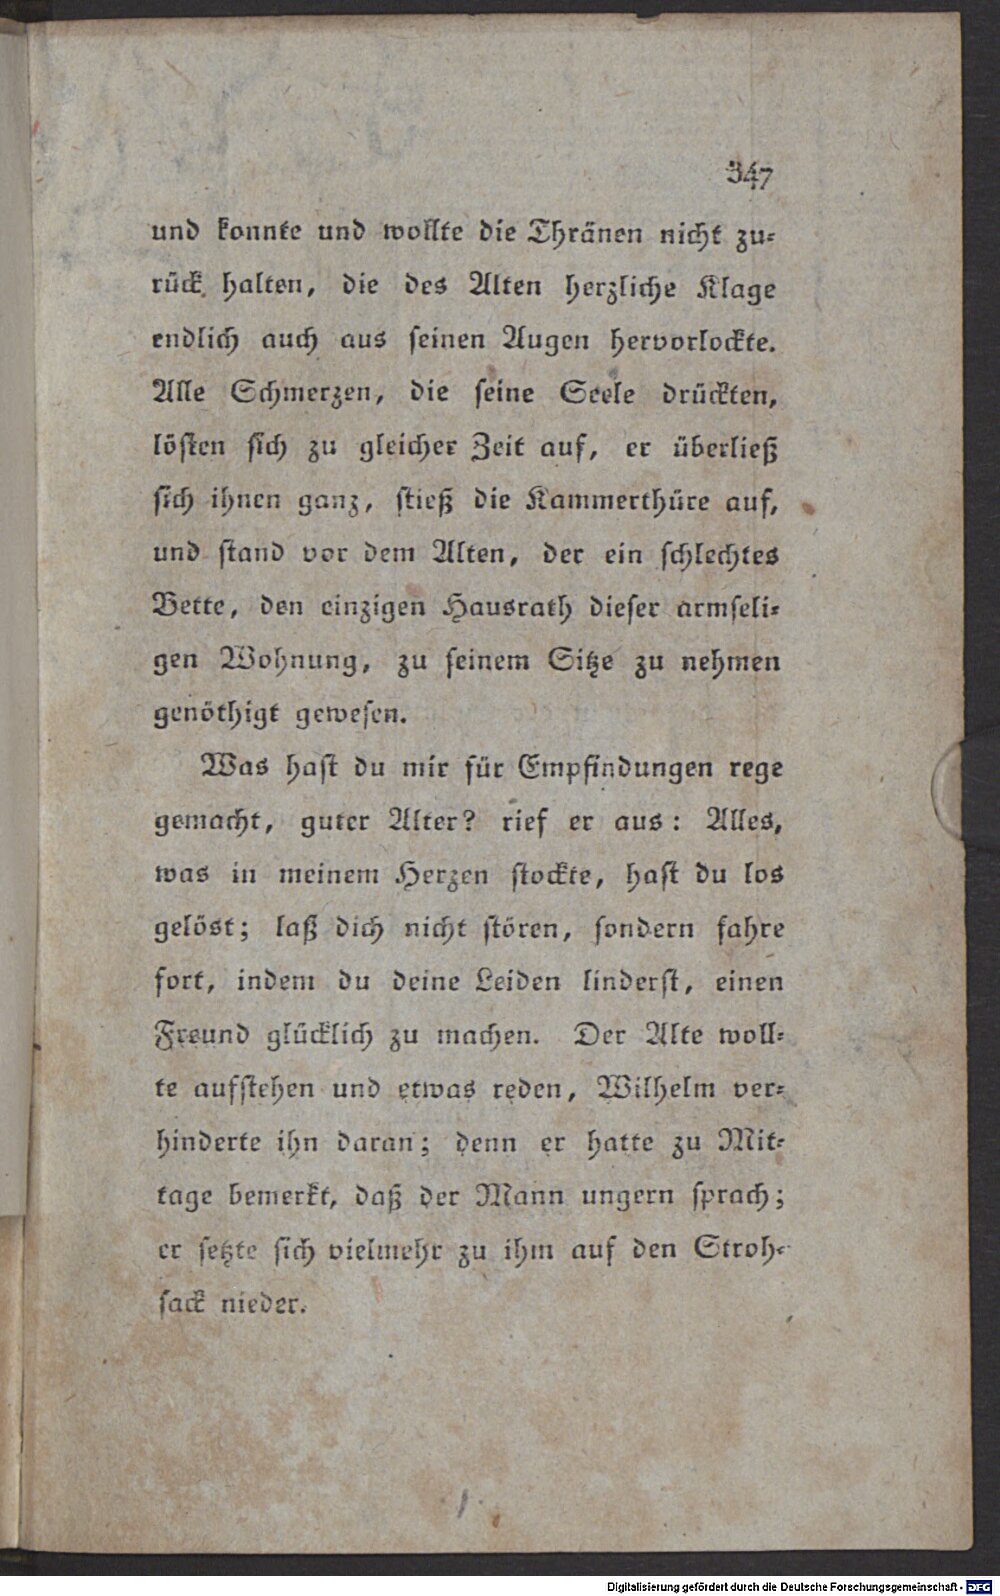 347
und konnte und wollte die Thränen nicht zu-
rück halten, die des Alten herzliche Klage
endlich auch aus seinen Augen hervorlockte.
Alle Schmerzen, die seine Seele drückten,
lösten sich zu gleicher Zeit auf, er überließ
sich ihnen ganz, stieß die Kammerthüre auf,
und stand vor dem Alten, der ein schlechtes
Bette, den einzigen Hausrath dieser armseli-
gen Wohnung, zu seinem Sitze zu nehmen
genöthigt gewesen.
Was hast du mir für Empfindungen rege
gemacht, guter Alter? rief er aus: Alles,
was in meinem Herzen stockte, hast du los
gelöst; laß dich nicht stören, sondern fahre
fort, indem du deine Leiden linderst, einen
Freund glücklich zu machen. Der Alte woll-
te aufstehen und etwas reden, Wilhelm ver-
hinderte ihn daran; denn er hatte zu Mit-
tage bemerkt, daß der Mann ungern sprach;
er setzte sich vielmehr zu ihm auf den Stroh-
sack nieder.
Digitalisierung gefördert durch die Deutsche Forschungsgemeinschaft - DFG